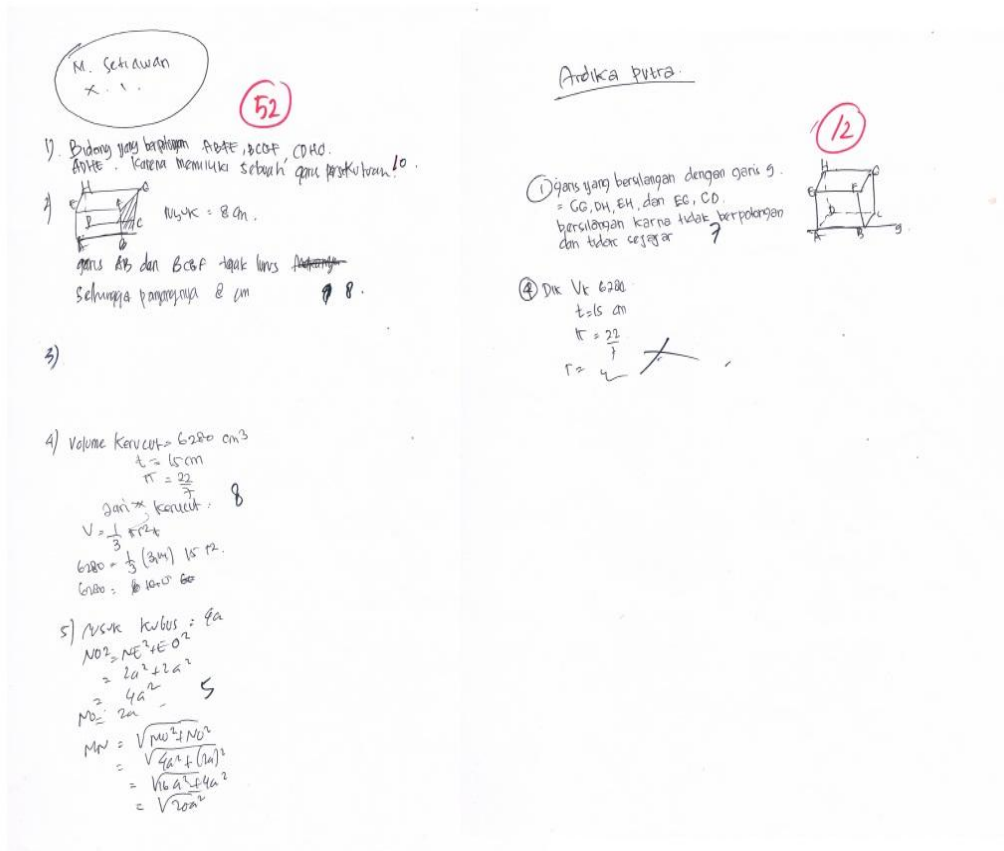 M. Setiawan
X. 1.
52
1). Bidang yang berpotongan ABFE, BCGF, CDHG.
ADHE. Karena memiliki sebuah garis persekutuan! 10.
2)
H G
E F
D C
A B
Rusuk = 8 cm.
garis AB dan BCGF tegak lurus
Sehingga panjangnya 8 cm 8.
3)
4) Volume Kerucut = 6280 cm3
t = 15 cm
π = 22/7
Jari kerucut. 8
V = 1/3 πr2t
6280 = 1/3 (3,14) 15 r2.
6280 =
5) Rusuk kubus = 4a
NO2 = NE2 + EO2
= 2a2 + 2a2
= 4a2
NO = 2a 5
MN = √MO2 + NO2
= √4a2 + (2a)2
= √16a2 + 4a2
= √20a2
Ardika Putra.
12
1 garis yang bersilangan dengan garis g.
= CG, DH, EH, dan EG, CD.
bersilangan karna tidak berpotongan
dan tidak sejajar 7
H G
E F
D C
A B g.
4 Dik Vk 6280
t = 15 cm
π = 22/7
r =